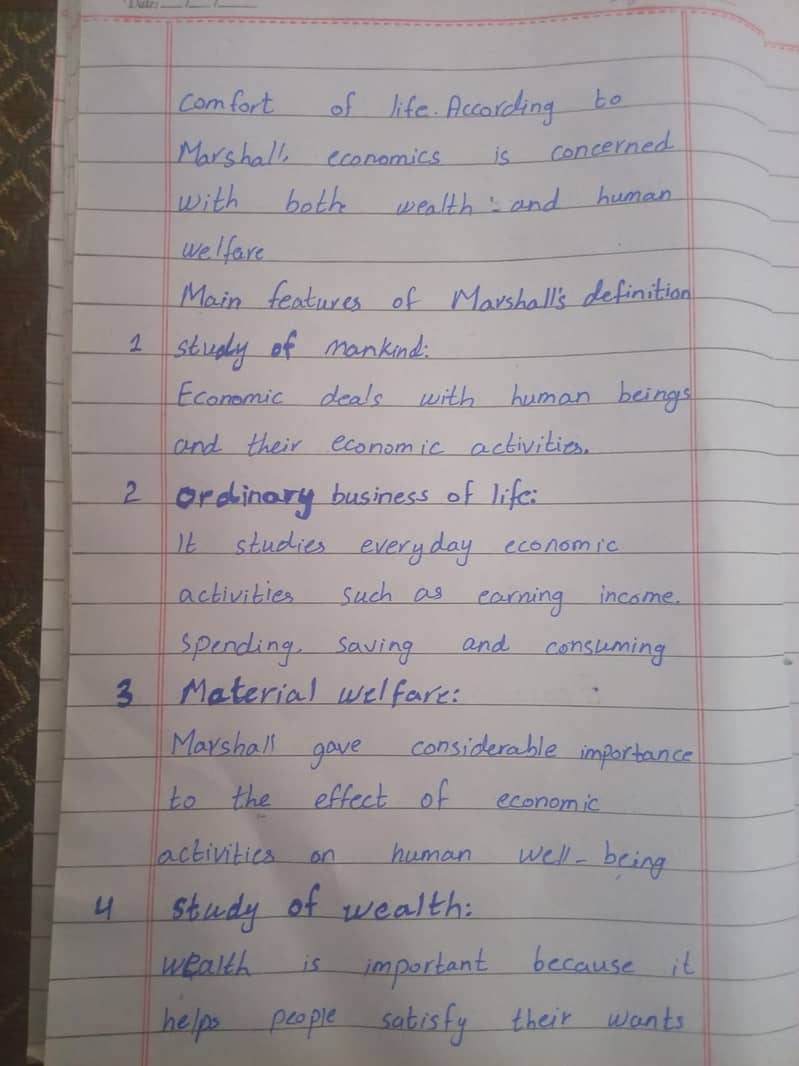 Date: __/__/__
comfort of life. According to
Marshall, economics is concerned
with both wealth and human
welfare
Main features of Marshall's definition
1 study of mankind:
Economic deals with human beings
and their economic activities.
2 ordinary business of life:
It studies everyday economic
activities such as earning income.
spending, saving and consuming
3 Material welfare:
Marshall gave considerable importance
to the effect of economic
activities on human well-being
4 study of wealth:
wealth is important because it
helps people satisfy their wants